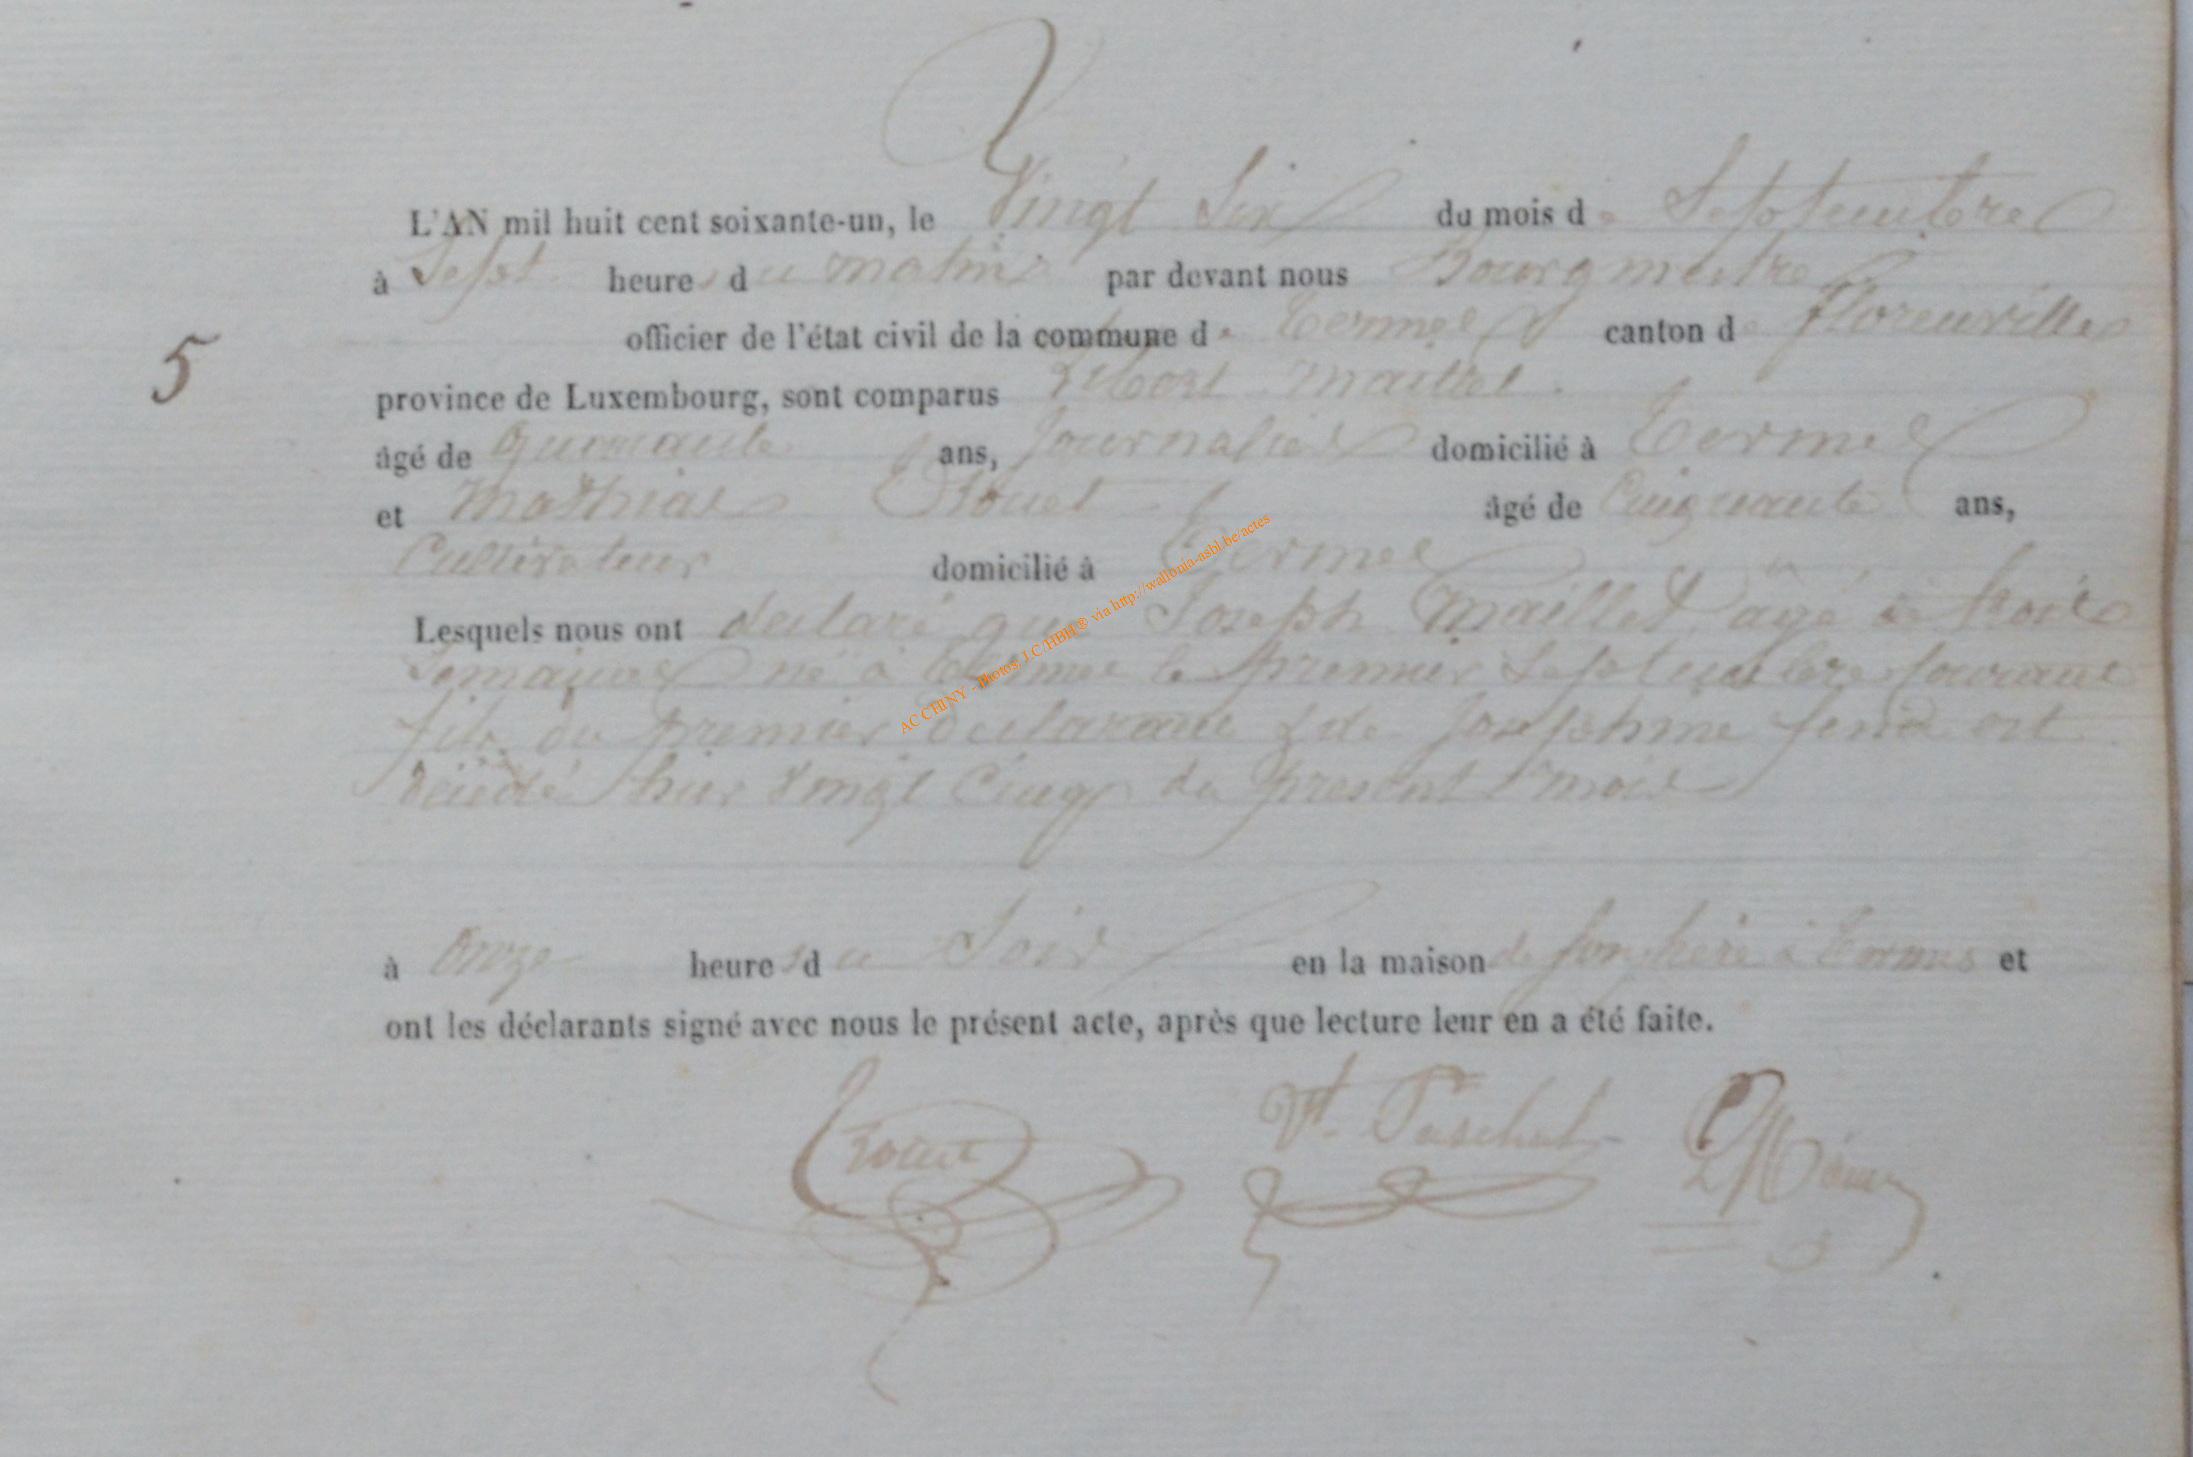 L'AN mil huit cent soixante-un, le Vingt Six du mois de Septembre
à Sept heures du matin par devant nous Bourgmestre
officier de l'état civil de la commune de Termes canton de Florenville
5
province de Luxembourg, sont comparus Maillet
âgé de quarante ans, Journalier domicilié à Termes
et Mathias âgé de Cinquante ans,
Cultivateur domicilié à Termes
Lesquels nous ont declaré que Joseph Maillet âgé de trois
Semaines né à Termes le premier Septembre courant
fils du premier declarant & de Josephine est
décédé hier Vingt Cinq du présent mois
à Onze heures du Soir en la maison de son père à Termes et
ont les déclarants signé avec nous le présent acte, après que lecture leur en a été faite.
Paschal
AC CHINY - Photos, J.C./HBH® via http://wallonia-asbl.be/actes